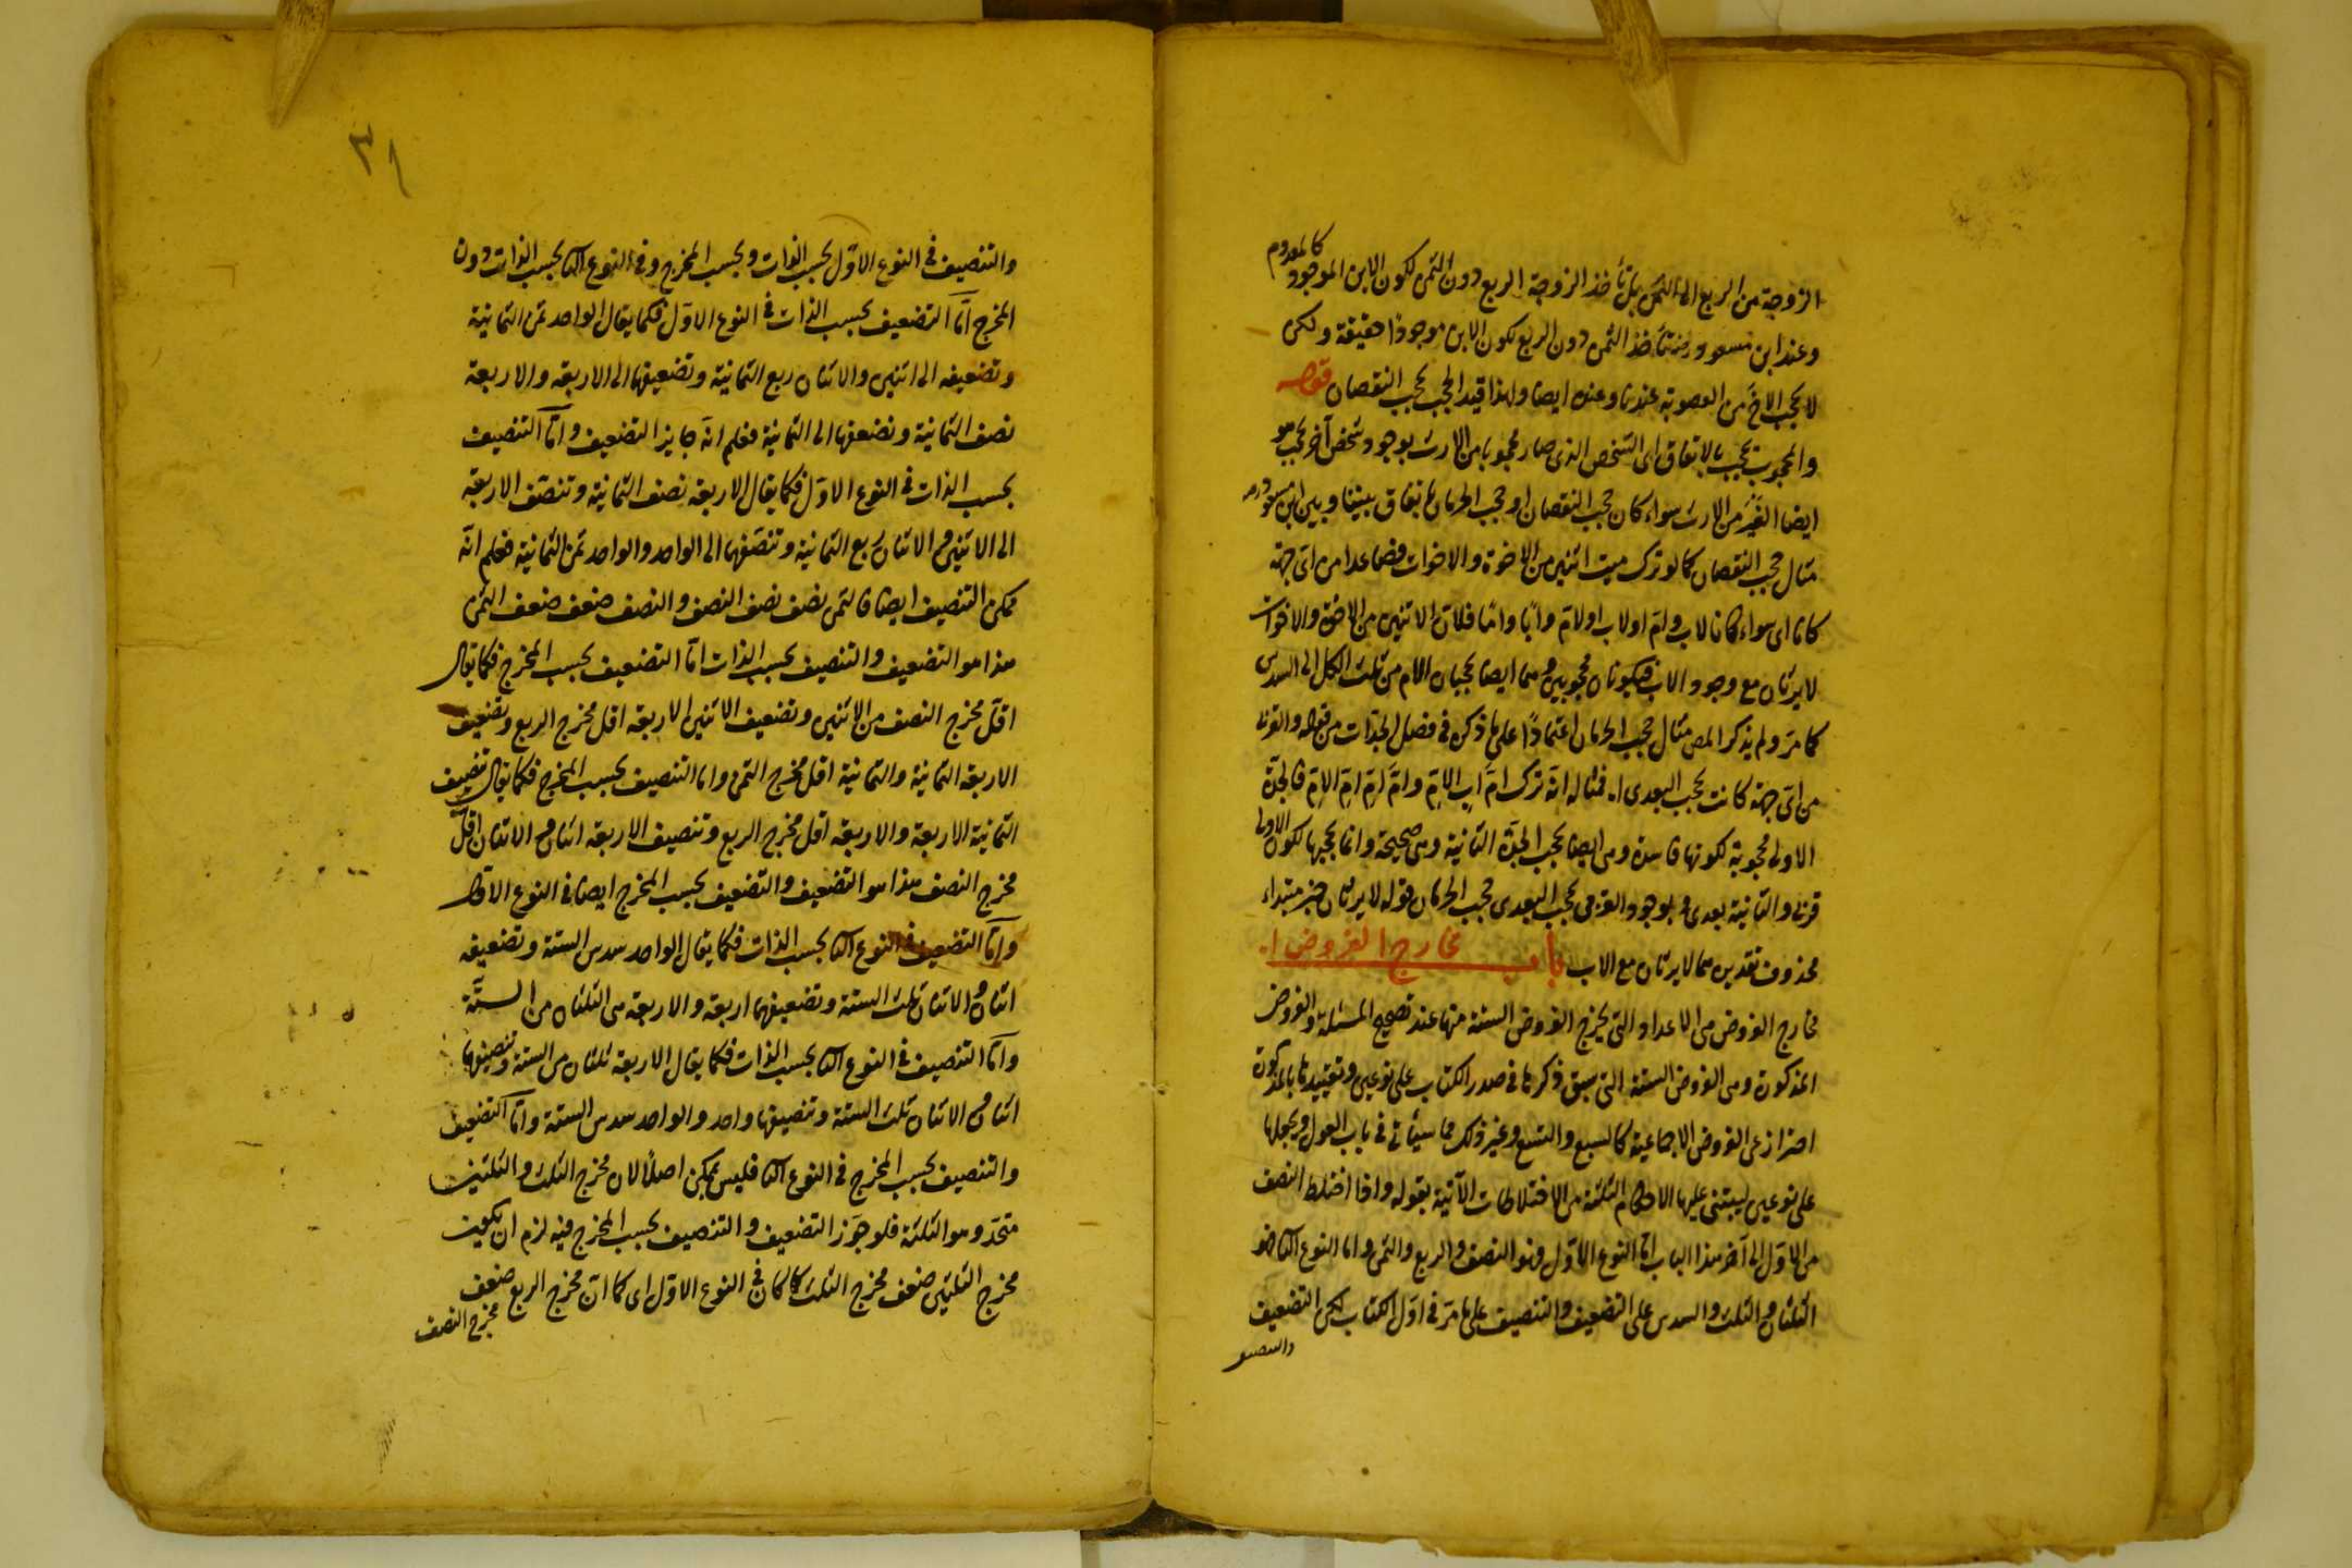 الزوجة من الربع الى الثمن بل تأخذ الزوجة الربع دون الثمن لكون الابن الموجود كالمعدوم
وعند ابن مسعود رض تأخذ الثمن دون الربع لكون الابن موجودا حقيقة ولكن
لا يحجب الاخ من العصوبة عندنا وعنده ايضا ولهذا قيد الحجب بحجب النقصان قوله
والمحجوب يحجب بالاتفاق اى الشخص الذى صار محجوبا من الارث بوجود شخص آخر يحجب هو
ايضا الغير من الارث سواء كان حجب النقصان او حجب الحرمان باتفاق بيننا وبين ابن مسعود رض
مثال حجب النقصان كما لو ترك ميت اثنين من الاخوة والاخوات فصاعدا من اى جهة
كانا اى سواء كانا لاب وام او لاب او لام وابا واما فلان الاثنين من الاخوة والاخوات
لا يرثان مع وجود الاب فيكونان محجوبين وهما ايضا يحجبان الام من ثلث الكل الى السدس
كما مر ولم يذكر المص مثال حجب الحرمان اعتمادا على ما ذكره في فصل الجدات من قوله والقربى
من اى جهة كانت يحجب البعدى اه فمثاله انه ترك ام اب الام وام ام ام الام فالجدة
الاولى محجوبة لكونها فاسدة وهى ايضا يحجب الجدة الثانية وهى صحيحة وانما يحجبها لكون الاولى
قربى والثانية بعدى وبوجود القربى يحجب البعدى حجب الحرمان قوله لا يرثان خبر مبتداء
محذوف تقديره هما لا يرثان مع الاب باب مخارج الفروض اه
مخارج الفروض هى الاعداد التى يخرج الفروض الستة منها عند تصحيح المسئلة والفروض
المذكورة وهى الفروض الستة التى سبق ذكرها فى صدر الكتاب على نوعين وتقييدها بالمذكورة
احتراز عن الفروض الاجتماعية كالسبع والتسع وغير ذلك مما سيأتى فى باب العول ويجعلها
على نوعين ليبتنى عليها الاحكام الثلثة من الاختلاطات الآتية بقوله واذا اختلط النصف
من الاول الى آخر هذا الباب اما النوع الاول فهو النصف والربع والثمن واما النوع الثانى فهو
الثلثان والثلث والسدس على التضعيف والتنصيف على ما مر فى اول الكتاب لكن التضعيف
والتنصيف
٣١
والتنصيف فى النوع الاول بحسب الذات وبحسب المخرج وفى النوع الثانى بحسب الذات دون
المخرج اما التضعيف بحسب الذات فى النوع الاول فكما يقال الواحد ثمن الثمانية
وتضعيفه الى اثنين والاثنان ربع الثمانية وتضعيفها الى الاربعة والاربعة
نصف الثمانية وتضعفها الى الثمانية فعلم انه جايز التضعيف واما التنصيف
بحسب الذات فى النوع الاول فكما يقال الاربعة نصف الثمانية وتنصف الاربعة
الى الاثنين والاثنان ربع الثمانية وتنصفها الى الواحد والواحد ثمن الثمانية فعلم انه
يمكن التنصيف ايضا فالثمن نصف نصف النصف والنصف ضعف ضعف الثمن
هذا هو التضعيف والتنصيف بحسب الذات اما التضعيف بحسب المخرج فكما يقال
اقل مخرج النصف من الاثنين وتضعيف الاثنين الاربعة اقل مخرج الربع وتضعيف
الاربعة الثمانية والثمانية اقل مخرج الثمن واما التنصيف بحسب المخرج فكما يقال تنصيف
الثمانية الاربعة والاربعة اقل مخرج الربع وتنصيف الاربعة اثنان والاثنان اقل
مخرج النصف هذا هو التضعيف والتضعيف بحسب المخرج ايضا فى النوع الاول
واما التضعيف فى النوع الثانى بحسب الذات فكما يقال الواحد سدس الستة وتضعيفه
اثنان والاثنان ثلث الستة وتضعيفهما اربعة والاربعة هى الثلثان من الستة
واما التنصيف فى النوع الثانى بحسب الذات فكما يقال الاربعة ثلثان من الستة وتنصيفها
اثنان والاثنان ثلث الستة وتنصيفها واحد والواحد سدس الستة واما التضعيف
والتنصيف بحسب المخرج فى النوع الثانى فليس يمكن اصلا لان مخرج الثلث والثلثين
متحد وهو الثلثة فلو جوز التضعيف والتنصيف بحسب المخرج فيه لزم ان يكون
مخرج الثلثين ضعف مخرج الثلث كما كان فى النوع الاول اى كما ان مخرج الربع ضعف
مخرج النصف